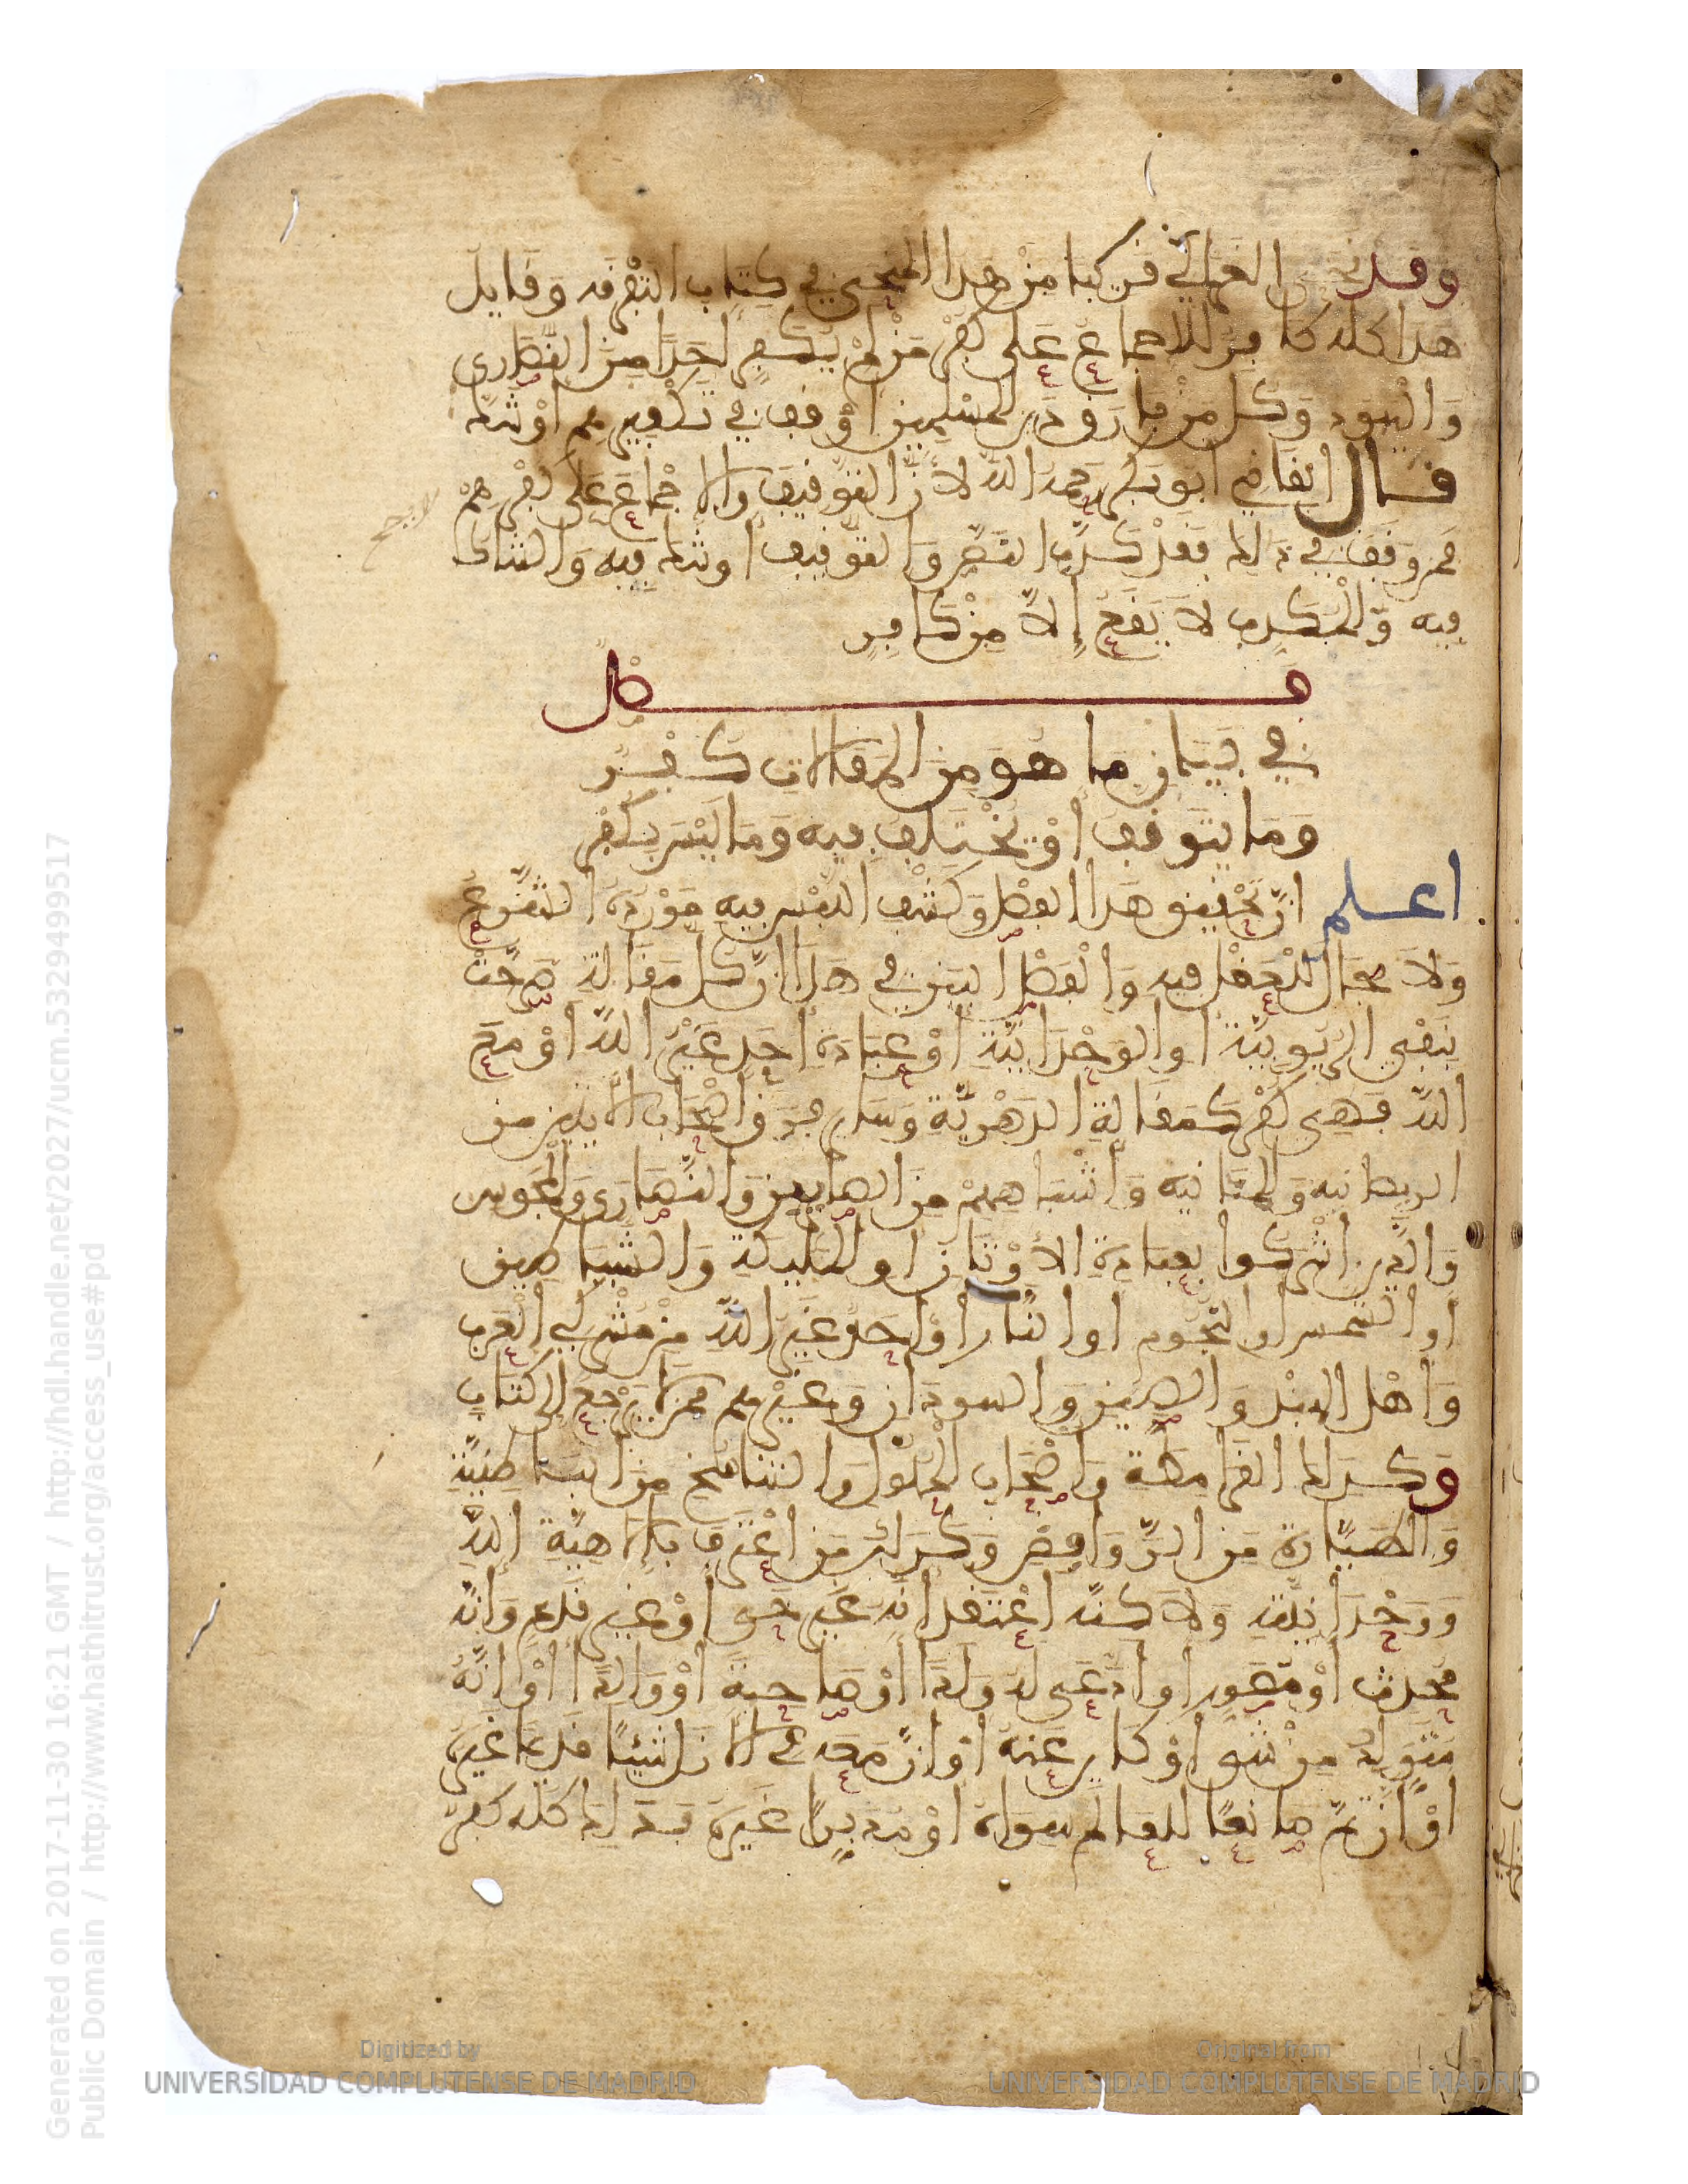 وقد نحى الغزالي قريبا من هذا المنحى في كتاب التفرقة وقايل
هذا كله كافر للاجماع على كفر من لم يكفر احدا من النصارى
واليهود وكل من فارق دين المسلمين او وقف في تكفيرهم او شك
قال القاضي ابو بكر رحمه الله لان التوفيق والاجماع على كفرهم
فمن وقف في ذلك فقد كذب النص والتوفيق او شك فيه والشاك
فيه والمكذب لا يقع الا من كافر
فصل
في بيان ما هو من المقالات كفر
وما يتوقف او يختلف فيه وما ليس بكفر
اعلم ان تحقيق هذا الفصل وكشف اللبس فيه مورده الشرع
ولا مجال للعقل فيه والفصل البين في هذا ان كل مقالة صرحت
بنفي الربوبية او الوحدانية او عبادة احد غير الله او مع
الله فهي كفر كمقالة الدهرية وساير فرق اصحاب الاثنين من
الديصانية والمانية واشباههم من الصابين والنصارى والمجوس
والذين اشركوا بعبادة الاوثان او المليكة والشياطين
او الشمس او النجوم او النار او احد غير الله من مشركي العرب
واهل الهند والصين والسودان وغيرهم ممن لا يرجع الى كتاب
وكذلك القرامطة واصحاب الحلول والتناسخ من الباطنية
والطيارة من الروافض وكذلك من اعترف بالاهية الله
ووحدانيته ولاكنه اعتقد انه غير حي او غير قديم وانه
محدث او مصور او ادعى له ولدا او صاحبة او والدا او انه
متولد من شي او كاين عنه او ان معه في الازل شيئا قديما غيره
او ان ثم صانعا للعالم سواه او مدبرا غيره فذلك كله كفر